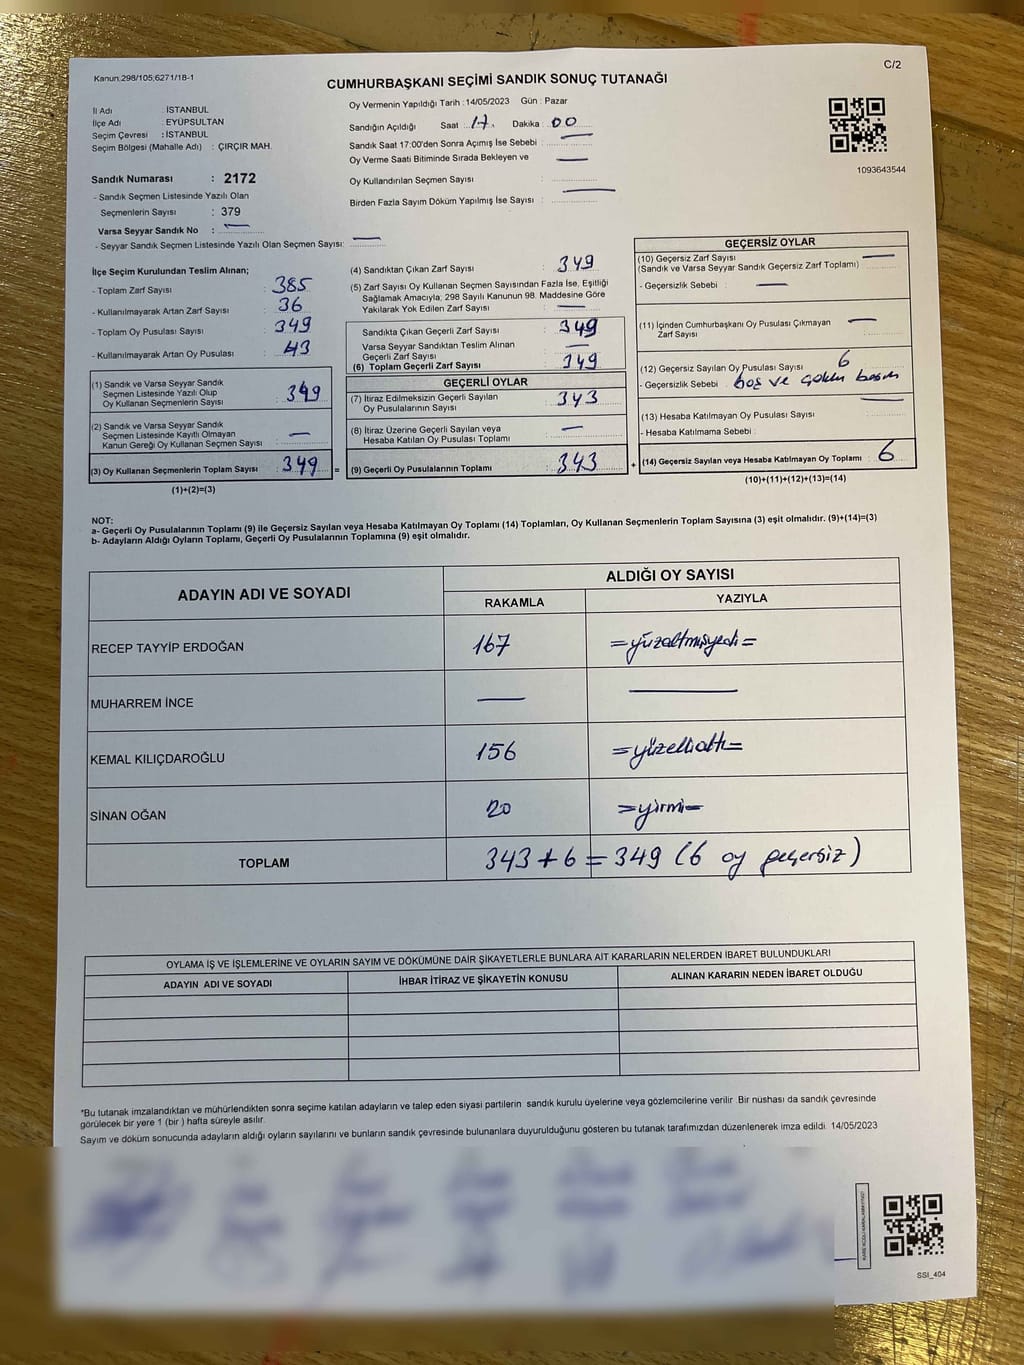 Kanun:298/105;6271/18-1
C/2
CUMHURBAŞKANI SEÇİMİ SANDIK SONUÇ TUTANAĞI
İl Adı : İSTANBUL
İlçe Adı : EYÜPSULTAN
Seçim Çevresi : İSTANBUL
Seçim Bölgesi (Mahalle Adı) : ÇIRÇIR MAH.
Sandık Numarası : 2172
- Sandık Seçmen Listesinde Yazılı Olan
Seçmenlerin Sayısı : 379
Varsa Seyyar Sandık No : —
- Seyyar Sandık Seçmen Listesinde Yazılı Olan Seçmen Sayısı: —
Oy Vermenin Yapıldığı Tarih : 14/05/2023 Gün : Pazar
Sandığın Açıldığı Saat : 17. Dakika : 00
Sandık Saat 17:00'den Sonra Açımış İse Sebebi : —
Oy Verme Saati Bitiminde Sırada Bekleyen ve —
Oy Kullandırılan Seçmen Sayısı :
Birden Fazla Sayım Döküm Yapılmış İse Sayısı : —
1093643544
İlçe Seçim Kurulundan Teslim Alınan;
- Toplam Zarf Sayısı : 385
- Kullanılmayarak Artan Zarf Sayısı : 36
- Toplam Oy Pusulası Sayısı : 349
- Kullanılmayarak Artan Oy Pusulası : 43
(1) Sandık ve Varsa Seyyar Sandık
Seçmen Listesinde Yazılı Olup
Oy Kullanan Seçmenlerin Sayısı : 349
(2) Sandık ve Varsa Seyyar Sandık
Seçmen Listesinde Kayıtlı Olmayan
Kanun Gereği Oy Kullanan Seçmen Sayısı : —
(3) Oy Kullanan Seçmenlerin Toplam Sayısı : 349 =
(1)+(2)=(3)
(4) Sandıktan Çıkan Zarf Sayısı : 349
(5) Zarf Sayısı Oy Kullanan Seçmen Sayısından Fazla İse, Eşitliği
Sağlamak Amacıyla; 298 Sayılı Kanunun 98. Maddesine Göre
Yakılarak Yok Edilen Zarf Sayısı : —
Sandıkta Çıkan Geçerli Zarf Sayısı : 349
Varsa Seyyar Sandıktan Teslim Alınan
Geçerli Zarf Sayısı : —
(6) Toplam Geçerli Zarf Sayısı : 349
GEÇERLİ OYLAR
(7) İtiraz Edilmeksizin Geçerli Sayılan
Oy Pusulalarının Sayısı : 343
(8) İtiraz Üzerine Geçerli Sayılan veya
Hesaba Katılan Oy Pusulası Toplamı : —
(9) Geçerli Oy Pusulalarının Toplamı : 343 +
GEÇERSİZ OYLAR
(10) Geçersiz Zarf Sayısı : —
(Sandık ve Varsa Seyyar Sandık Geçersiz Zarf Toplamı)
- Geçersizlik Sebebi : —
(11) İçinden Cumhurbaşkanı Oy Pusulası Çıkmayan —
Zarf Sayısı :
(12) Geçersiz Sayılan Oy Pusulası Sayısı : 6
- Geçersizlik Sebebi : boş ve çoklu basım
(13) Hesaba Katılmayan Oy Pusulası Sayısı : —
- Hesaba Katılmama Sebebi :
(14) Geçersiz Sayılan veya Hesaba Katılmayan Oy Toplamı : 6
(10)+(11)+(12)+(13)=(14)
NOT:
a- Geçerli Oy Pusulalarının Toplamı (9) ile Geçersiz Sayılan veya Hesaba Katılmayan Oy Toplamı (14) Toplamları, Oy Kullanan Seçmenlerin Toplam Sayısına (3) eşit olmalıdır. (9)+(14)=(3)
b- Adayların Aldığı Oyların Toplamı, Geçerli Oy Pusulalarının Toplamına (9) eşit olmalıdır.
ADAYIN ADI VE SOYADI
ALDIĞI OY SAYISI
RAKAMLA YAZIYLA
RECEP TAYYİP ERDOĞAN 167 =yüzaltmışyedi=
MUHARREM İNCE — —
KEMAL KILIÇDAROĞLU 156 =yüzellialtı=
SİNAN OĞAN 20 =yirmi=
TOPLAM 343+6=349 (6 oy geçersiz)
OYLAMA İŞ VE İŞLEMLERİNE VE OYLARIN SAYIM VE DÖKÜMÜNE DAİR ŞİKAYETLERLE BUNLARA AİT KARARLARIN NELERDEN İBARET BULUNDUKLARI
ADAYIN ADI VE SOYADI İHBAR İTİRAZ VE ŞİKAYETİN KONUSU ALINAN KARARIN NEDEN İBARET OLDUĞU
*Bu tutanak imzalandıktan ve mühürlendikten sonra seçime katılan adayların ve talep eden siyasi partilerin sandık kurulu üyelerine veya gözlemcilerine verilir. Bir nüshası da sandık çevresinde
görülecek bir yere 1 (bir ) hafta süreyle asılır.
Sayım ve döküm sonucunda adayların aldığı oyların sayılarını ve bunların sandık çevresinde bulunanlara duyurulduğunu gösteren bu tutanak tarafımızdan düzenlenerek imza edildi. 14/05/2023
SSI_404